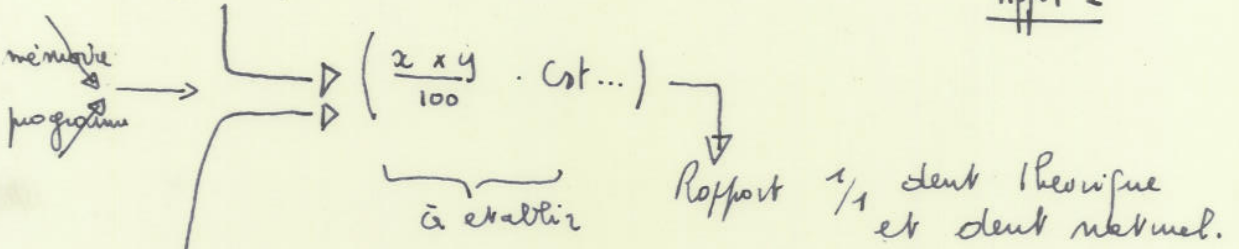 mémoire
programme
( x × y / 100 . Cst... )
à etablir
Rapport 1/1 dent théorique
et dent naturel.